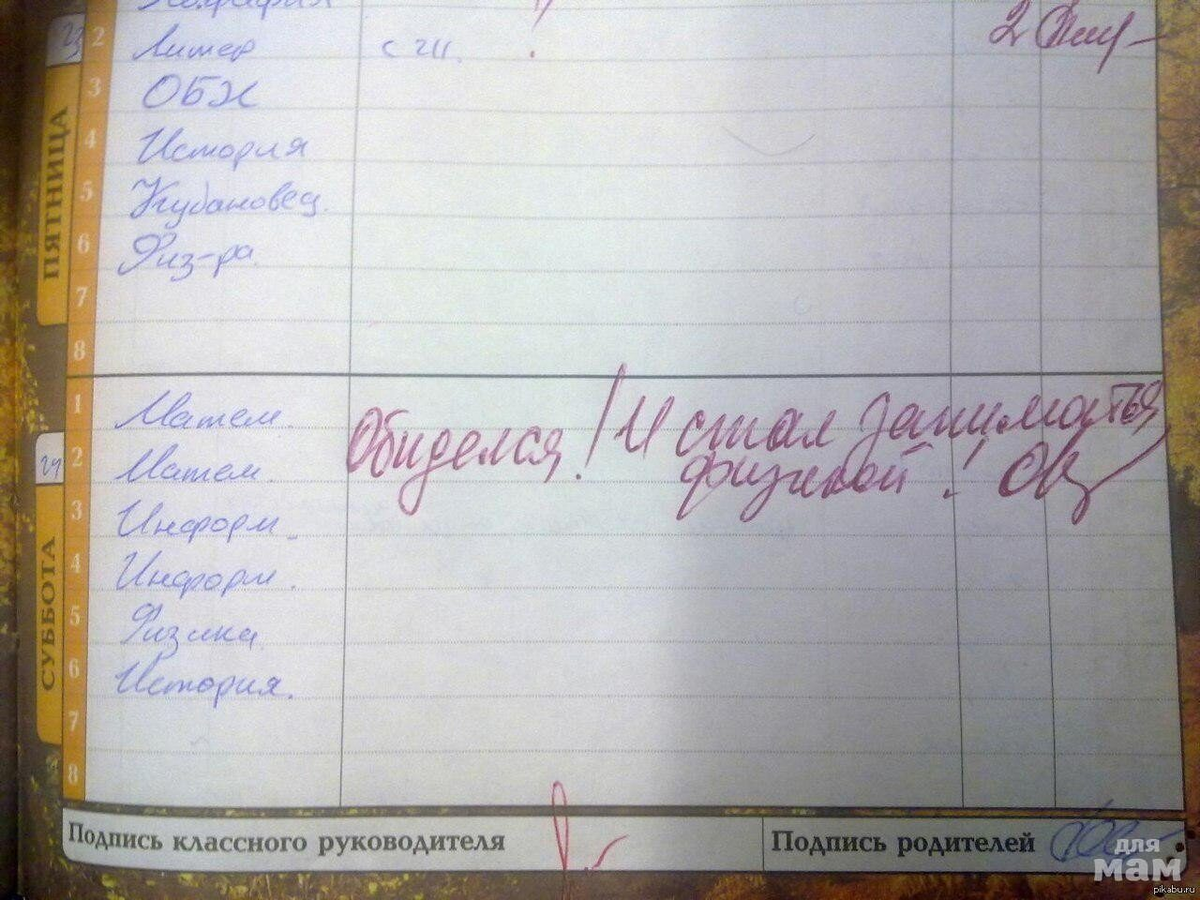 География
23
ПЯТНИЦА
2 Литер с 211. 2
3 ОБЖ
4 История
5 Кубановед.
6 Физ-ра
7
8
24
СУББОТА
1 Матем.
2 Матем.
Обиделся! И стал заниматься
физикой!
3 Информ.
4 Информ.
5 Физика
6 История.
7
8
Подпись классного руководителя
Подпись родителей
для
мам
pikabu.ru